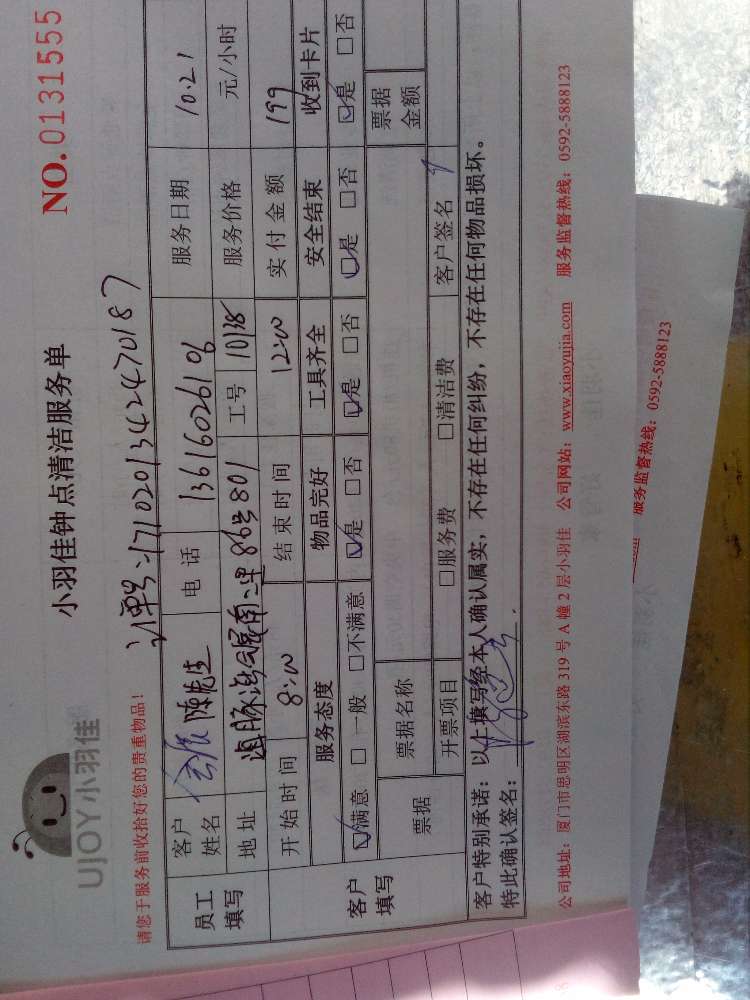 UJOY小羽佳
小羽佳钟点清洁服务单
NO.0131555
请您于服务前收拾好您的贵重物品！
订单号:1710201342470187
员工填写
客户姓名 陈先生 电话 13616026106 服务日期 10.21
地址 86号801 工号 10138 服务价格 元/小时
客户填写
开始时间 8:00 结束时间 12:00 实付金额 199
服务态度 物品完好 工具齐全 安全结束 收到卡片
☑满意 □一般 □不满意 ☑是 □否 ☑是 □否 ☑是 □否 ☑是 □否
票据 票据名称 票据金额
开票项目 □服务费 □清洁费 客户签名
客户特别承诺：以上填写经本人确认属实，不存在任何纠纷，不存在任何物品损坏。
特此确认签名：
公司地址：厦门市思明区湖滨东路 319 号 A 幢 2 层小羽佳 公司网站：www.xiaoyujia.com 服务监督热线：0592-5888123
.com 服务监督热线：0592-5888123